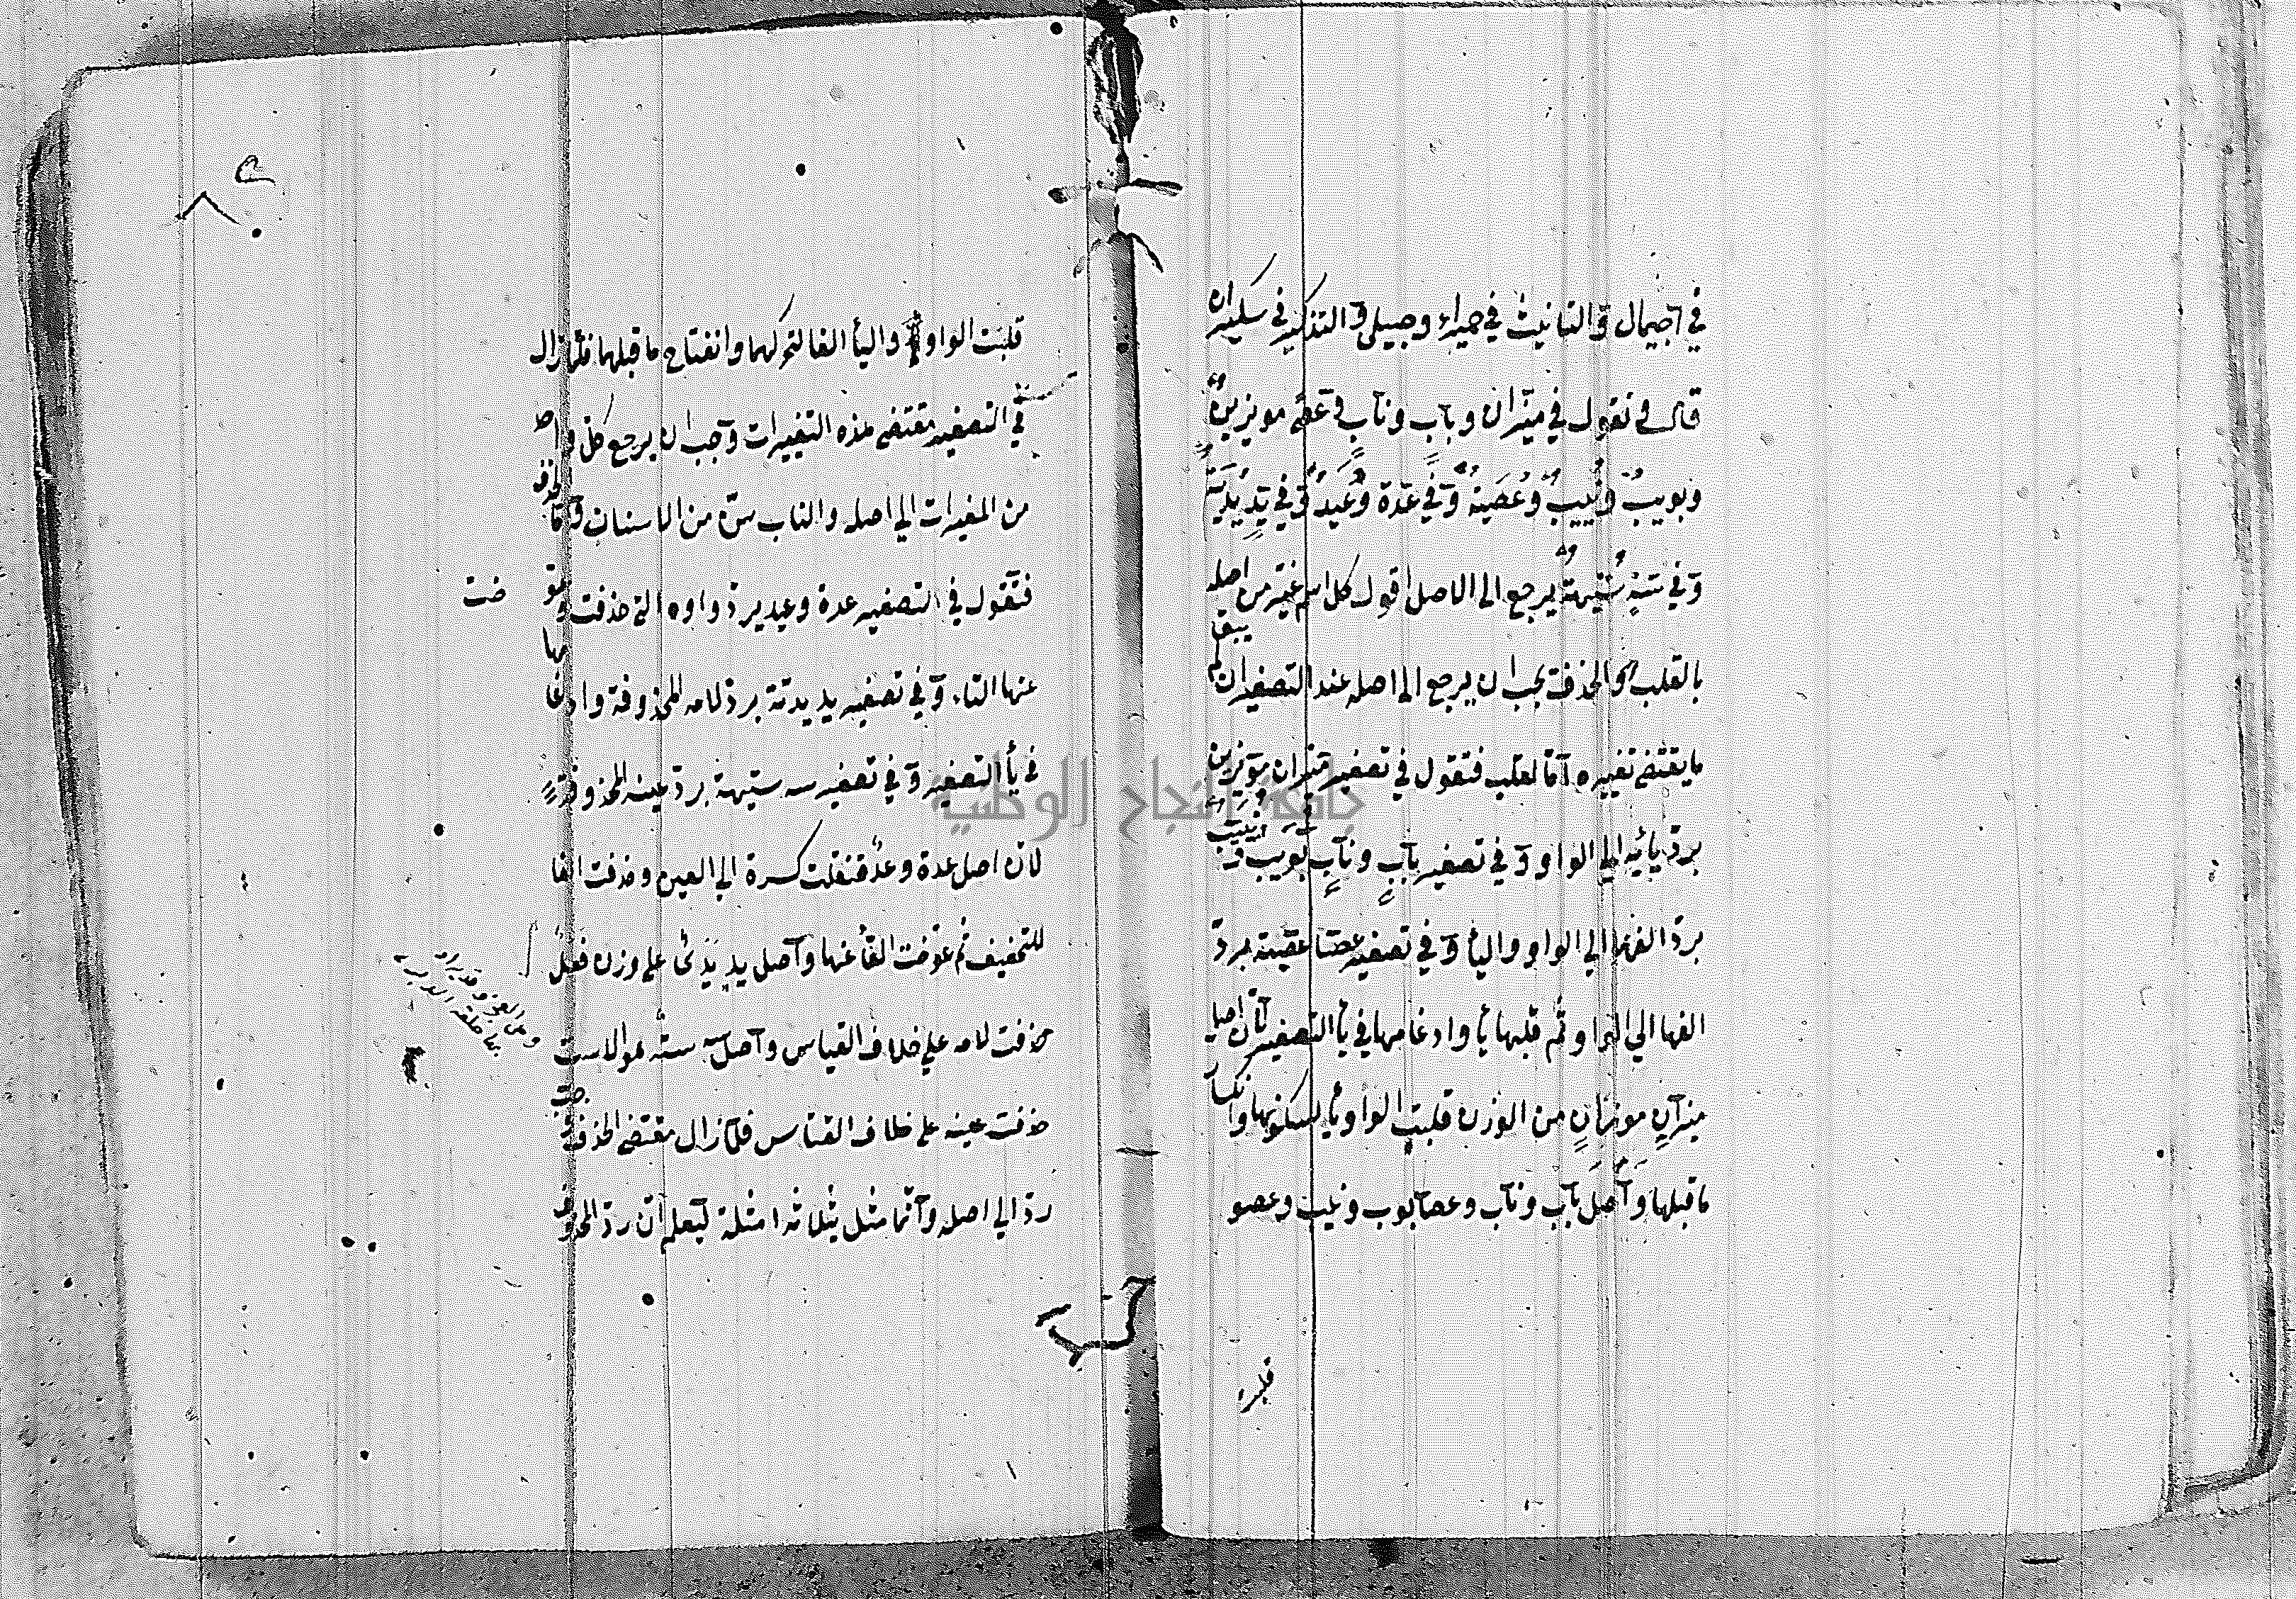 في اجيمال و التانيث في حميراء وحبيلى و التذكير في سكيران
قال و نقول في ميزان وباب وناب و عصا مويزين
وبويب ونييب وعصية و في عدة وعيد و في يد يدية
و في سه ستيهة يرجع الى الاصل اقول كل اسم غير من اصله
بالقلب او الحذف يجب ان يرجع الى اصله عند التصغير ان لم يبق
ما يقتضي تغييره اما القلب فتقول في تصغير ميزان مويزين
برد يائه الى الواو و في تصغير باب وناب بويب و نييب
برد الفهما الى الواو والياء و في تصغير عصا عصية برد
الفها الى الواو ثم قلبها ياء وادغامها في ياء التصغير لان اصل
ميزان موزان من الوزن قلبت الواو ياء لسكونها وانكسار
ما قبلها و اصل باب وناب وعصا بوب ونيب وعصو
قلبت
قلبت الواو والياء الفا لتحركهما وانفتاح ما قبلهما فلما زال
في التصغير مقتضي هذه التغييرات وجب ان يرجع كل واحد
من المغيرات الى اصله والناب سن من الاسنان و اما الحذف
فتقول في التصغير عدة وعيد يرد واوه التي حذفت وعو
ضت
عنها التاء و في تصغير يد يدية برد لامه المحذوفة وادغامها
في ياء التصغير و في تصغير سه ستيهة برد عينه المحذوفة
لان اصل عدة وعد فنقلت كسرة الى العين وحذفت الفا
للتخفيف ثم عوضت التاء عنها و اصل يد يدي على وزن فعل
حذفت لامه على خلاف القياس و اصل سه سته هو الاست
حذفت عينه على خلاف القياس فلما زال مقتضي الحذف وجب
رد الى اصله و انما مثل بثلاثة امثلة ليعلم ان رد المحذوف
جامعة النجاح الوطنية